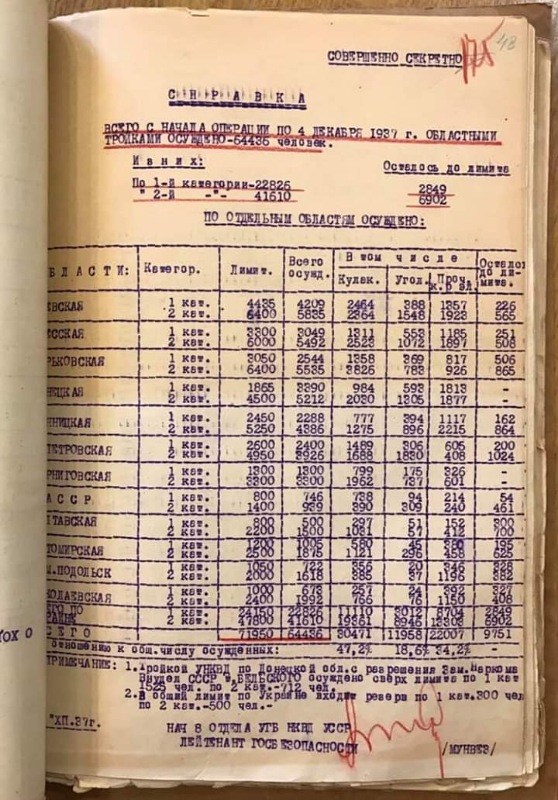 48
175
СОВЕРШЕННО СЕКРЕТНО
СПРАВКА
ВСЕГО С НАЧАЛА ОПЕРАЦИИ ПО 4 ДЕКАБРЯ 1937 г. ОБЛАСТНЫМИ
ТРОЙКАМИ ОСУЖДЕНО-64436 человек.
Из них: Осталось до лимита
По 1-й категории-22826 2849
" 2-й -"- 41610 6902
ПО ОТДЕЛЬНЫМ ОБЛАСТЯМ ОСУЖДЕНО:
БЛАСТИ: Категор. Лимит. Всего осужд. В том числе Кулак. Угол. Проч. к.р эл. Осталос до ли- мита.
ЕВСКАЯ 1 кат. 4435 4209 2464 388 1357 226
2 кат. 6400 5835 2364 1548 1923 565
ССКАЯ 1 кат. 3300 3049 1311 553 1185 251
2 кат. 6000 5492 2523 1072 1897 508
РЬКОВСКАЯ 1 кат. 3050 2544 1358 369 817 506
2 кат. 6400 5535 3826 783 926 865
НЕЦКАЯ 1 кат. 1865 3390 984 593 1813 -
2 кат. 4500 5212 2030 1305 1877 -
ННИЦКАЯ 1 кат. 2450 2288 777 394 1117 162
2 кат. 5250 4386 1275 896 2215 864
ПЕТРОВСКАЯ 1 кат. 2600 2400 1489 306 605 200
2 кат. 4950 3926 1688 1830 408 1024
РНИГОВСКАЯ 1 кат. 1300 1300 799 175 326 -
2 кат. 3300 3300 1962 737 601 -
АССР 1 кат. 800 746 94 214 54
2 кат. 1400 939 390 309 240 461
ТАВСКАЯ 1 кат. 800 500 297 51 152 300
2 кат. 2200 1500 1031 57 412 700
ТОМИРСКАЯ 1 кат. 1200 1005 46 195
2 кат. 2500 1875 1121 296 458 625
М.ПОДОЛЬСК 1 кат. 1050 722 356 20 346 328
2 кат. 2000 1618 385 37 1196 382
КОЛАЕВСКАЯ 1 кат. 1000 673 257 24 392 327
2 кат. 2400 1992 766 76 1150 408
ЕГО ПО 24150 22826 11110 3012 8704 2849
РАИНЕ 47800 41610 19361 8946 13303 6902
СЕГО 71950 64436 30471 11958 22007 9751
отношению к общ.числу осужденных: 47,2% 18,6% 34,2%
РИМЕЧАНИЕ: 1.Тройкой УНКВД по Донецкой обл.с разрешения Зам.Наркома
Внудел СССР т.БЕЛЬСКОГО осуждено сверх лимита по 1 кат
1525 чел. по 2 кат.-712 чел.
2.В общий лимит по Украине входит резерв по 1 кат.300 чел
по 2 кат.-500 чел.-
"ХП.37г.
НАЧ 8 ОТДЕЛА УГБ НКВД УССР
ЛЕЙТЕНАНТ ГОСБЕЗОПАСНОСТИ
/МУНВЕЗ/